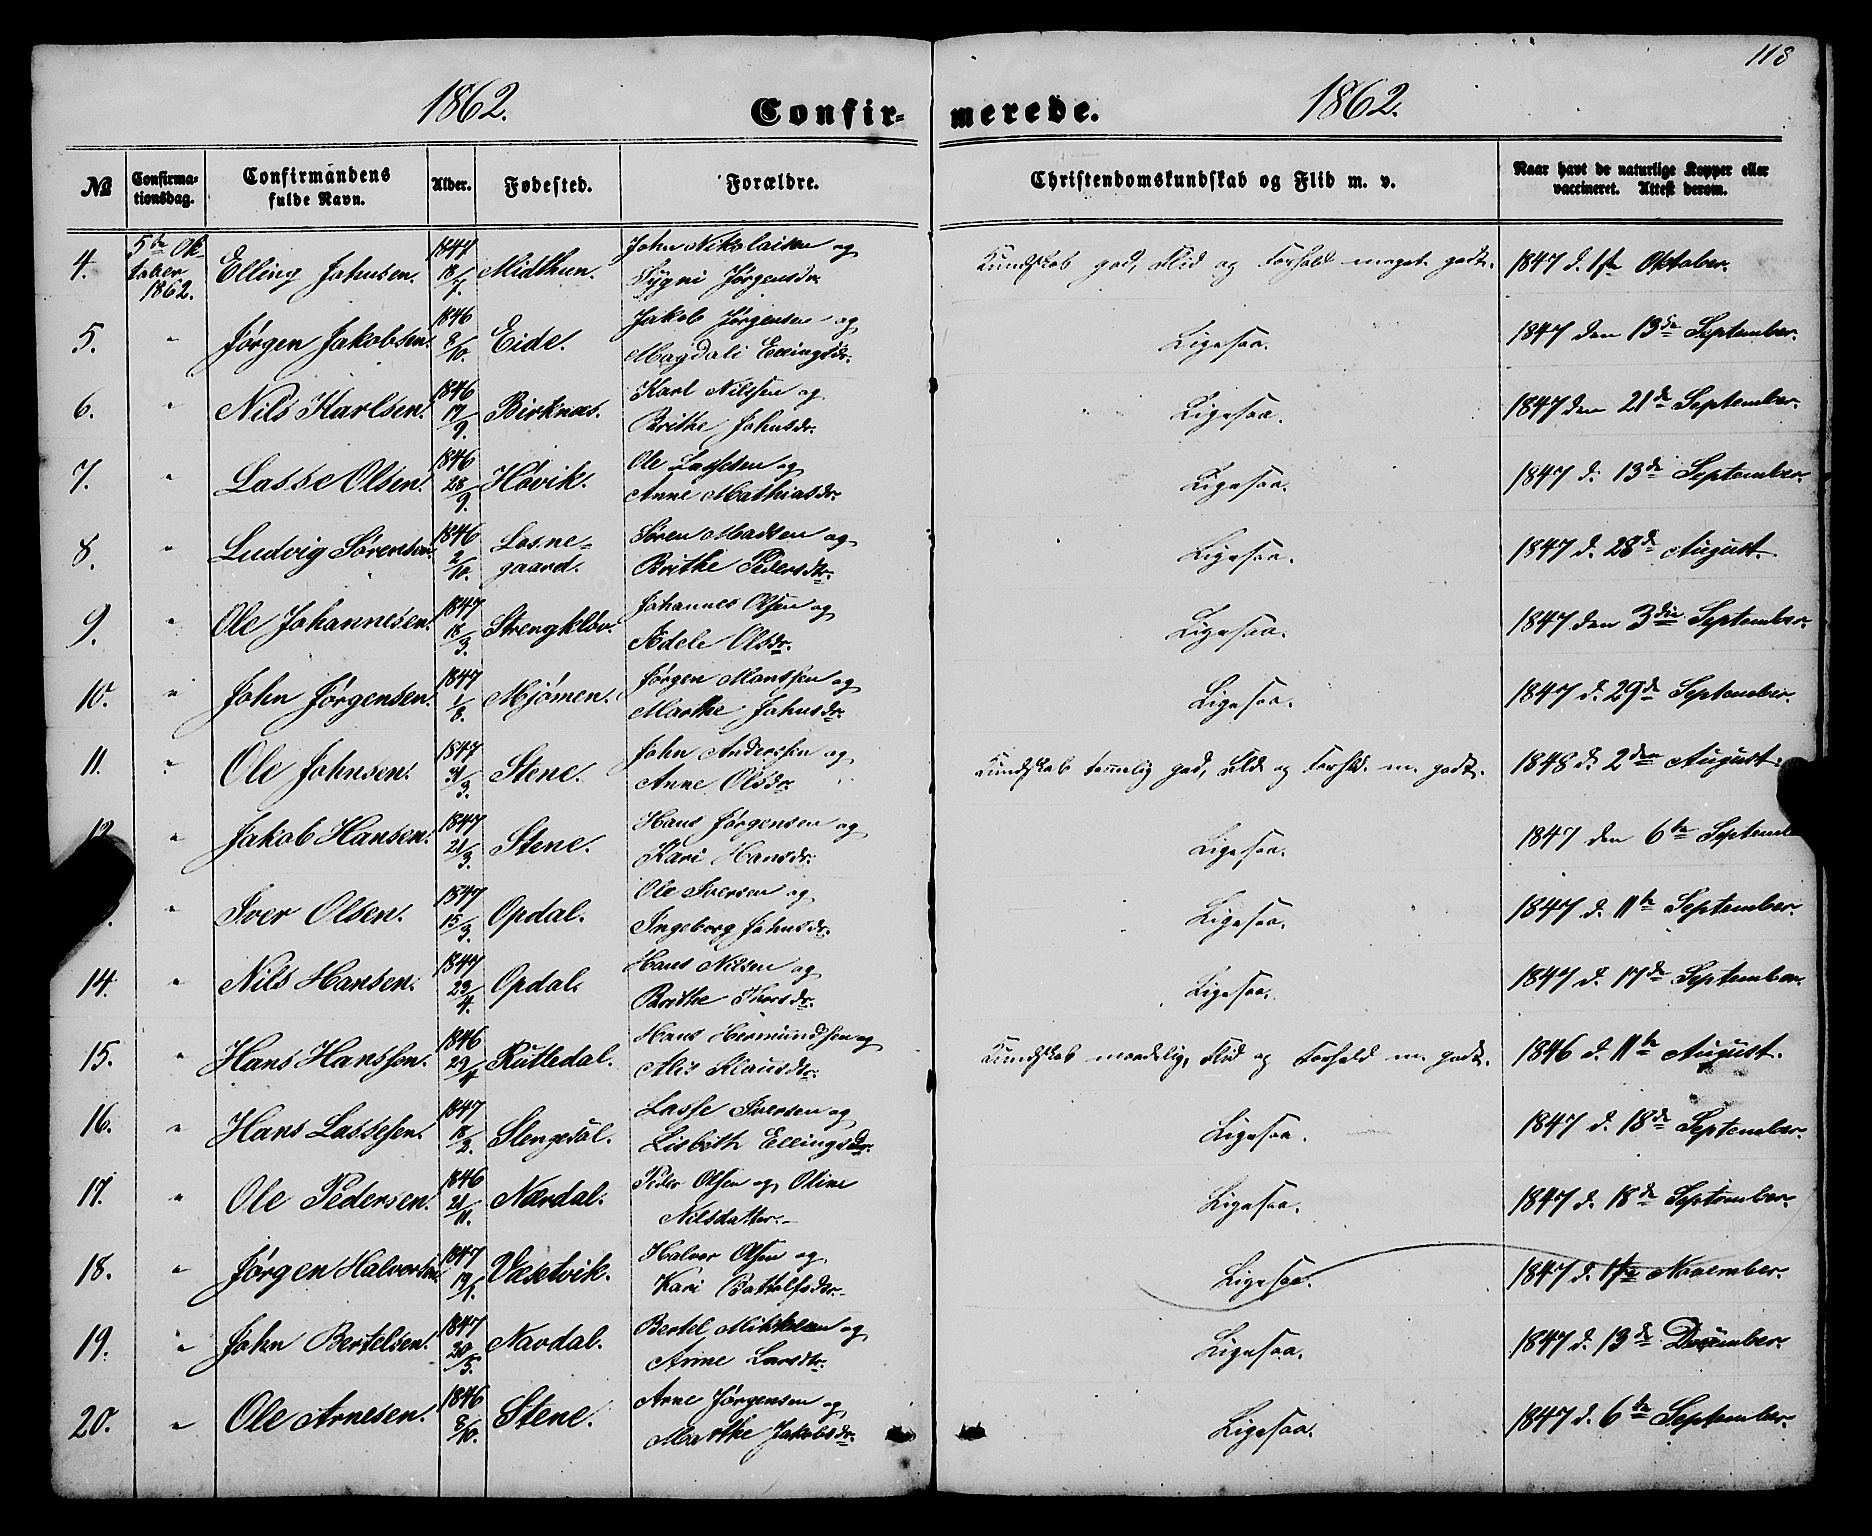 118
1862. Confir- merede. 1862.
No Confirma- tionsdag. Confirmandens fulde Navn. Alder. Fødested. Forældre. Christendomskundskab og Flid m. v. Naar havt de naturlige Kopper eller vaccineret. Attest derom.
4. 5te Ok- tober 1862. Elling Johnsen. 1847 18/7. Midthun. John Nikolaisen og Jørgensdr. Kundskab god, Flid og Forhold meget godt. 1847 d. 1ste Oktober.
5. " Jørgen Jakobsen. 1846 8/10. Eide. Jakob Jørgensen og Magdali Ellingsdr. Ligesaa. 1847 den 13de September.
6. " Nils Karlsen. 1846 17/9. Birknæs. Karl Nilssen og Brithe Johnsdr. Ligesaa. 1847 den 21de September.
7. " Lasse Olsen. 1846 28/9. Høvik. Ole Lassesen og Anne Mathiasdr. Ligesaa. 1847 d. 13de September.
8. " Ludvig Sørensen. 1846 2/10. Losne- gaard. Søren Madsen og Brithe Pedersdtr. Ligesaa. 1847 d. 28de August.
9. " Ole Johannesen. 1847 18/3. Strengkløv. Johannes Olsen og Adele Olsdr. Ligesaa. 1847 den 3die September.
10. " John Jørgensen. 1847 1/8. Mjømen. Jørgen Monssen og Marthe Johnsdr. Ligesaa. 1847 d. 29de September.
11. " Ole Johnsen. 1847 31/3. Stene. John Anderssen og Anne Olsdr. Kundskab temmelig god, Flid og Forhold m. godt. 1848 d. 2den August.
12 " Jakob Hansen. 1847 21/3. Stene. Hans Jørgensen og Kari Hansdr. Ligesaa. 1847 den 6te Septembe
" Iver Olsen. 1847 15/3. Opdal. Ole Iversen og Ingeborg Johnsdr. Ligesaa. 1847 d. 11te September.
14. " Nils Hansen. 1847 23/4. Opdal. Hans Nilsen og Brithe Thorsdr. Ligesaa. 1847 d. 17de September.
15. " Hans Hanssen. 1846 29/4 Rutledal. Hans Hermundsen og Klausdtr. Kundskab maadelig, Flid og Forhold m. godt. 1846 d. 11te August.
16. " Hans Lassesen. 1847 18/2. Stengesøl. Lasse Iversen og Lisbeth Ellingsdr. Ligesaa. 1847 d. 18de September.
17. " Ole Pedersen. 1846 21/11. Nærdal. Peder Olsen og Oline Nilsdatter. Ligesaa. 1847 d. 18de September.
18. " Jørgen Halvorsen 1847 19/1. Væsetvik. Halvor Olsen og Kari Ligesaa. 1847 d. 1ste November.
19. " John Bertelsen. 1847 20/5. Navdal. Bertel Mikkelsen og Anne Larsdtr. Ligesaa. 1847 d. 13de December.
20. " Ole Arnesen. 1846 8/10. Stene. Arne Jørgensen og Marthe Jakobsdr. Ligesaa. 1847 d. 6te September.